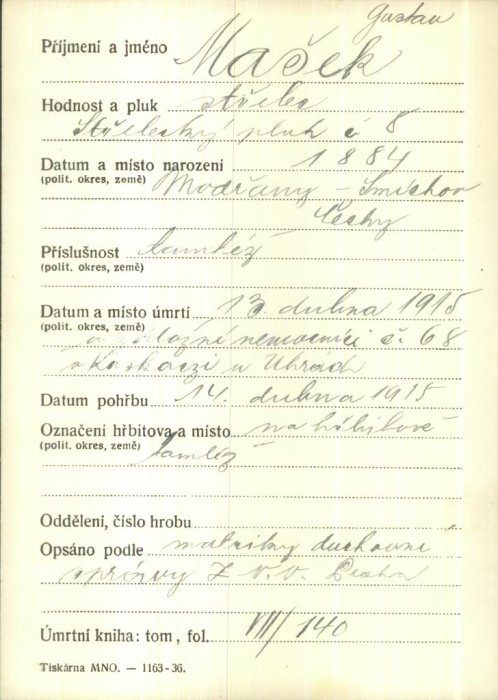 Gustav
Příjmení a jméno Mašek
Hodnost a pluk střelec
Střelecký pluk č 8
Datum a místo narození 1884
(polit. okres, země) Modřany – Smíchov
Čechy
Příslušnost tamtéž
(polit. okres, země)
Datum a místo úmrtí 13. dubna 1915
(polit. okres, země) v záložní nemocnici č. 68
v Uhrách
Datum pohřbu 14. dubna 1915
Označení hřbitova a místo na hřbitově
(polit. okres, země) tamtéž
Oddělení, číslo hrobu
Opsáno podle matriky duchovní
správy Z. V. V. Praha
Úmrtní kniha: tom, fol. VIII/140
Tiskárna MNO. — 1163-36.